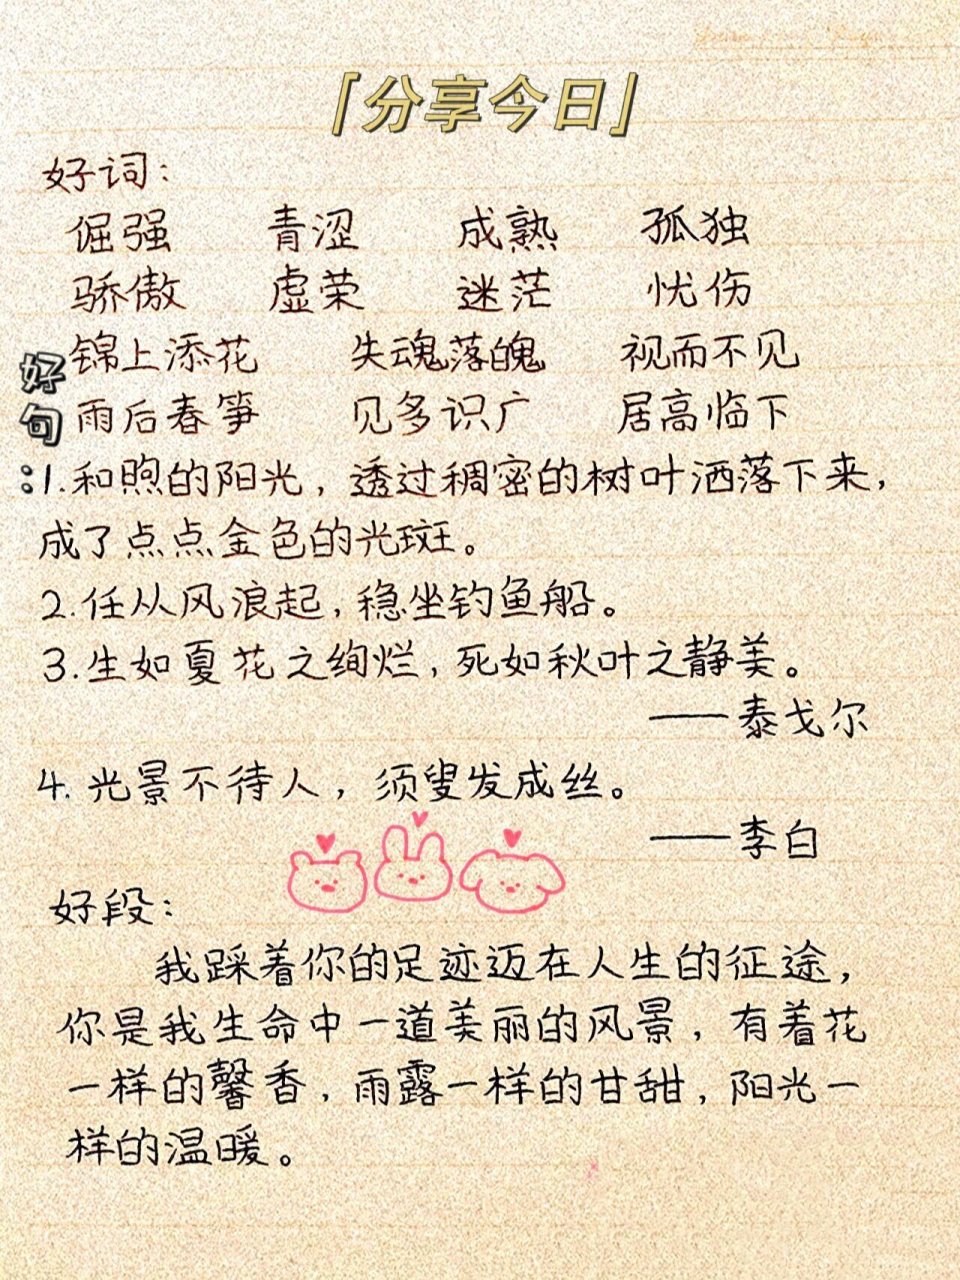 「分享今日」
好词：
倔强 青涩 成熟 孤独
骄傲 虚荣 迷茫 忧伤
锦上添花 失魂落魄 视而不见
雨后春笋 见多识广 居高临下
好句：
1.和煦的阳光，透过稠密的树叶洒落下来，
成了点点金色的光斑。
2.任从风浪起，稳坐钓鱼船。
3.生如夏花之绚烂，死如秋叶之静美。
——泰戈尔
4.光景不待人，须叟发成丝。
——李白
好段：
我踩着你的足迹迈在人生的征途，
你是我生命中一道美丽的风景，有着花
一样的馨香，雨露一样的甘甜，阳光一
样的温暖。